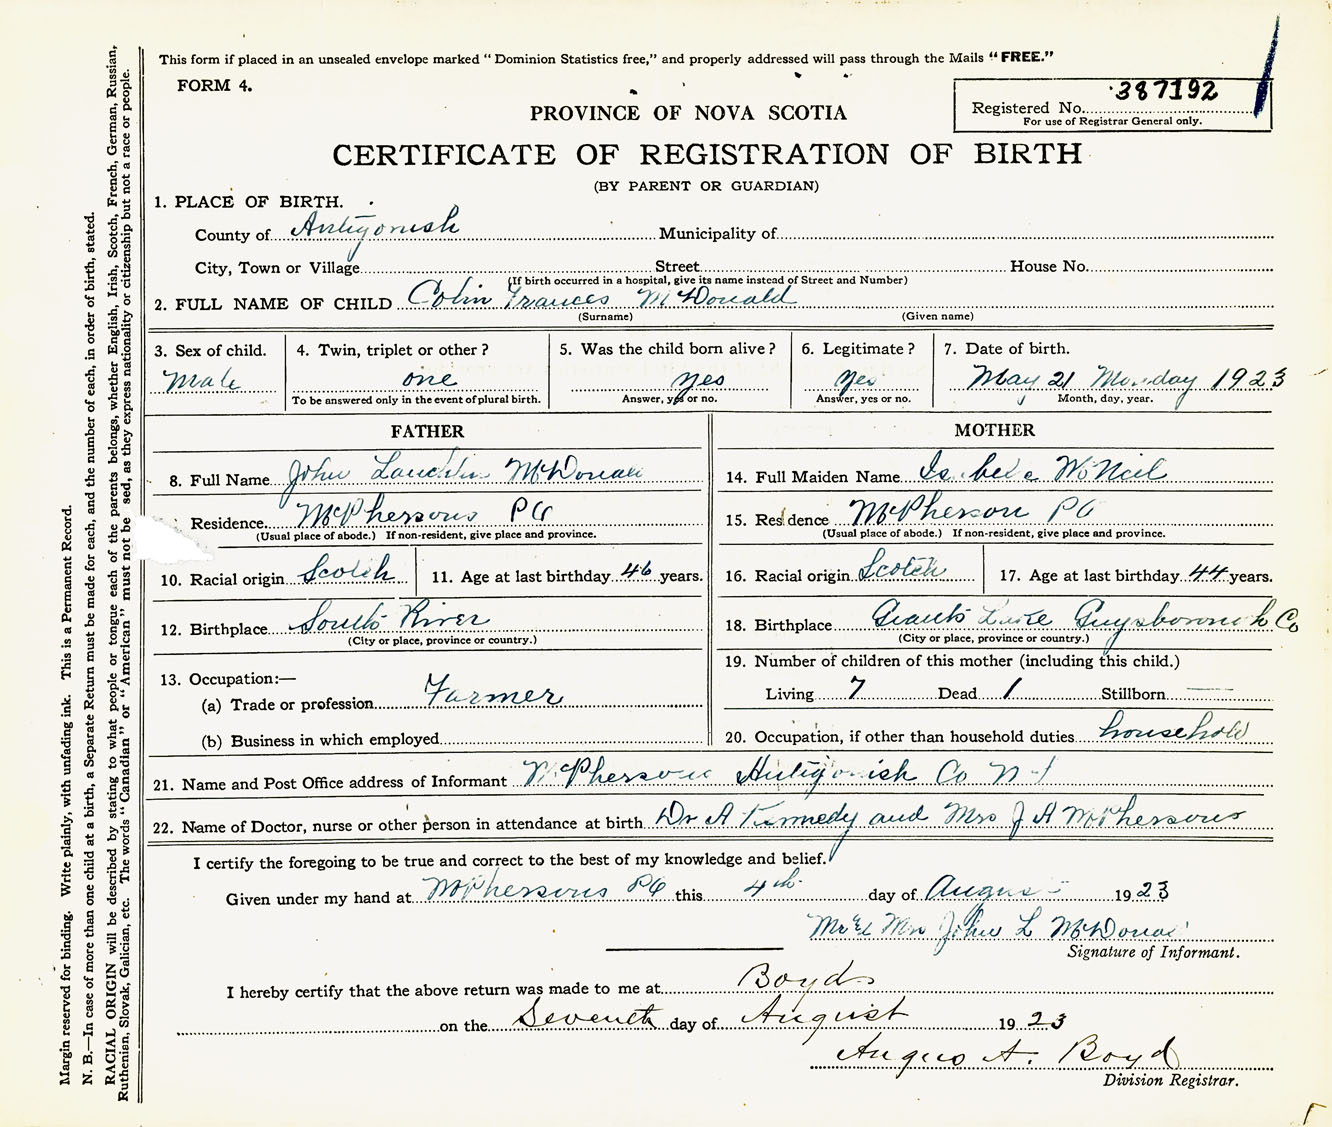 This form if placed in an unsealed envelope marked "Dominion Statistics free," and properly addressed will pass through the Mails "FREE."
FORM 4.
387192
Registered No.
For use of Registrar General only.
PROVINCE OF NOVA SCOTIA
CERTIFICATE OF REGISTRATION OF BIRTH
(BY PARENT OR GUARDIAN)
1. PLACE OF BIRTH.
County of Antigonish Municipality of
City, Town or Village Street House No.
(If birth occurred in a hospital, give its name instead of Street and Number)
2. FULL NAME OF CHILD Colin Frances McDonald
(Surname) (Given name)
3. Sex of child. 4. Twin, triplet or other? 5. Was the child born alive? 6. Legitimate? 7. Date of birth.
Male one yes yes May 21 Monday 1923
To be answered only in the event of plural birth. Answer, yes or no. Answer, yes or no. Month, day, year.
FATHER MOTHER
8. Full Name John Lauchlin McDonald 14. Full Maiden Name McNeil
Residence McPhersons PO 15. Residence McPherson PO
(Usual place of abode.) If non-resident, give place and province. (Usual place of abode.) If non-resident, give place and province.
10. Racial origin Scotch 11. Age at last birthday 46 years. 16. Racial origin Scotch 17. Age at last birthday 44 years.
12. Birthplace South River 18. Birthplace Grants Lake Guysborough Co
(City or place, province or country.) (City or place, province or country.)
13. Occupation:— 19. Number of children of this mother (including this child.)
(a) Trade or profession Farmer Living 7 Dead 1 Stillborn —
(b) Business in which employed 20. Occupation, if other than household duties household
21. Name and Post Office address of Informant McPhersons Antigonish Co N
22. Name of Doctor, nurse or other person in attendance at birth Dr A Kennedy and Mrs J A McPhersons
I certify the foregoing to be true and correct to the best of my knowledge and belief.
Given under my hand at McPhersons PO this 4th day of August 1923
Mr & Mrs John L McDonald
Signature of Informant.
I hereby certify that the above return was made to me at Boyds
on the Seventh day of August 1923
Angus A. Boyd
Division Registrar.
Margin reserved for binding. Write plainly, with unfading ink. This is a Permanent Record.
N. B.—In case of more than one child at a birth, a Separate Return must be made for each, and the number of each, in order of birth, stated.
RACIAL ORIGIN will be described by stating to what people or tongue each of the parents belongs, whether English, Irish, Scotch, French, German, Russian,
Ruthenian, Slovak, Galician, etc. The words "Canadian" or "American" must not be sed, as they express nationality or citizenship but not a race or people.